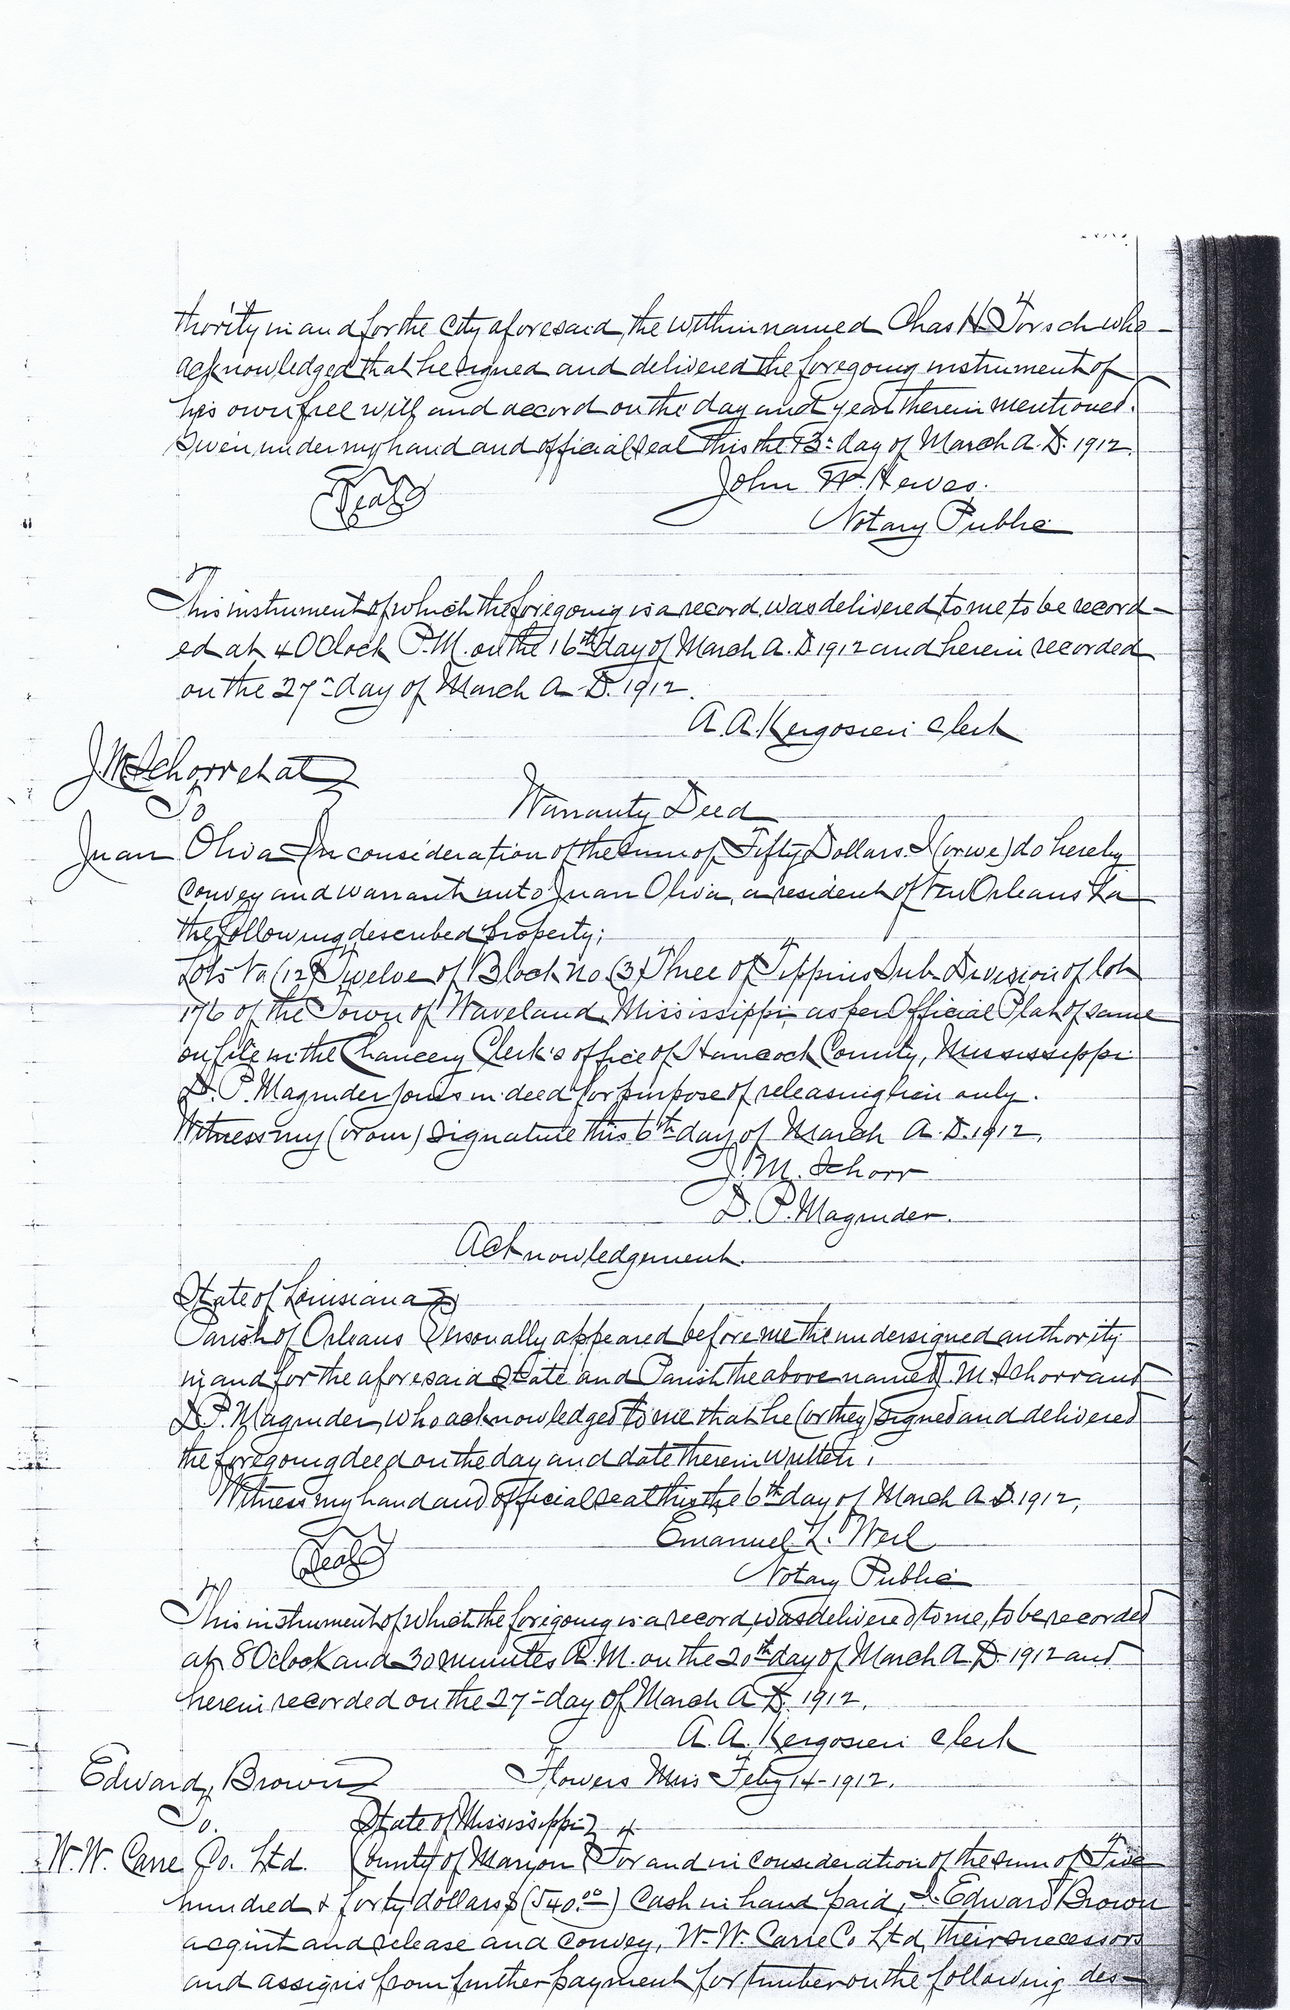 thority in and for the city aforesaid, the within named Chas H Torsch who
acknowledged that he signed and delivered the foregoing instrument of
his own free will and accord on the day and year therein mentioned.
Given under my hand and official seal this the 13- day of March A.D. 1912.
John W. Hewes.
Seal
Notary Public
This instrument of which the foregoing is a record, was delivered to me to be record-
ed at 4 OClock P.M. on the 16th day of March A.D 1912 and herein recorded
on the 27- day of March A.D. 1912.
A. A. Kergosien Clerk
J.M. Schorr et al
To
Warranty Deed
Juan Oliva In consideration of the sum of Fifty Dollars. I (or we) do hereby
convey and warrant unto Juan Oliva, a resident of New Orleans La
the following described property;
Lots No (12) Twelve of Block No. (3) Three of Tippins Sub-Division of lot
176 of the Town of Waveland, Mississippi, as per Official Plat of same
on file in the Chancery Clerk's office of Hancock County, Mississippi
D. P. Magruder joins in deed for purpose of releasing lien only.
Witness my (or our) signature this 6th day of March A.D. 1912.
J. M. Schorr
D. P. Magruder.
Acknowledgement.
State of Louisiana
Parish of Orleans Personally appeared before me the undersigned authority
in and for the aforesaid State and Parish the above named J. M Schorr and
D.P. Magruder, who acknowledged to me that he (or they) signed and delivered
the foregoing deed on the day and date therein written.
Witness my hand and official seal this the 6th day of March A.D. 1912,
Emanuel L. Weil
Seal
Notary Public
This instrument of which the foregoing is a record, was delivered to me, to be recorded
at 8 Oclock and 30 minutes A.M. on the 20th day of March A.D. 1912 and
herein recorded on the 27- day of March A.D. 1912.
A. A. Kergosien Clerk
Edward Brown
Flowers Miss Feby 14-1912.
To.
State of Mississippi
W.W. Carre Co. Ltd. County of Marion For and in consideration of the sum of Five
hundred & forty dollars $(540.00) Cash in hand paid, I. Edward Brown
acquit and release and convey, W.W. Carre Co Ltd, their successors
and assigns from further payment for timber on the following des-